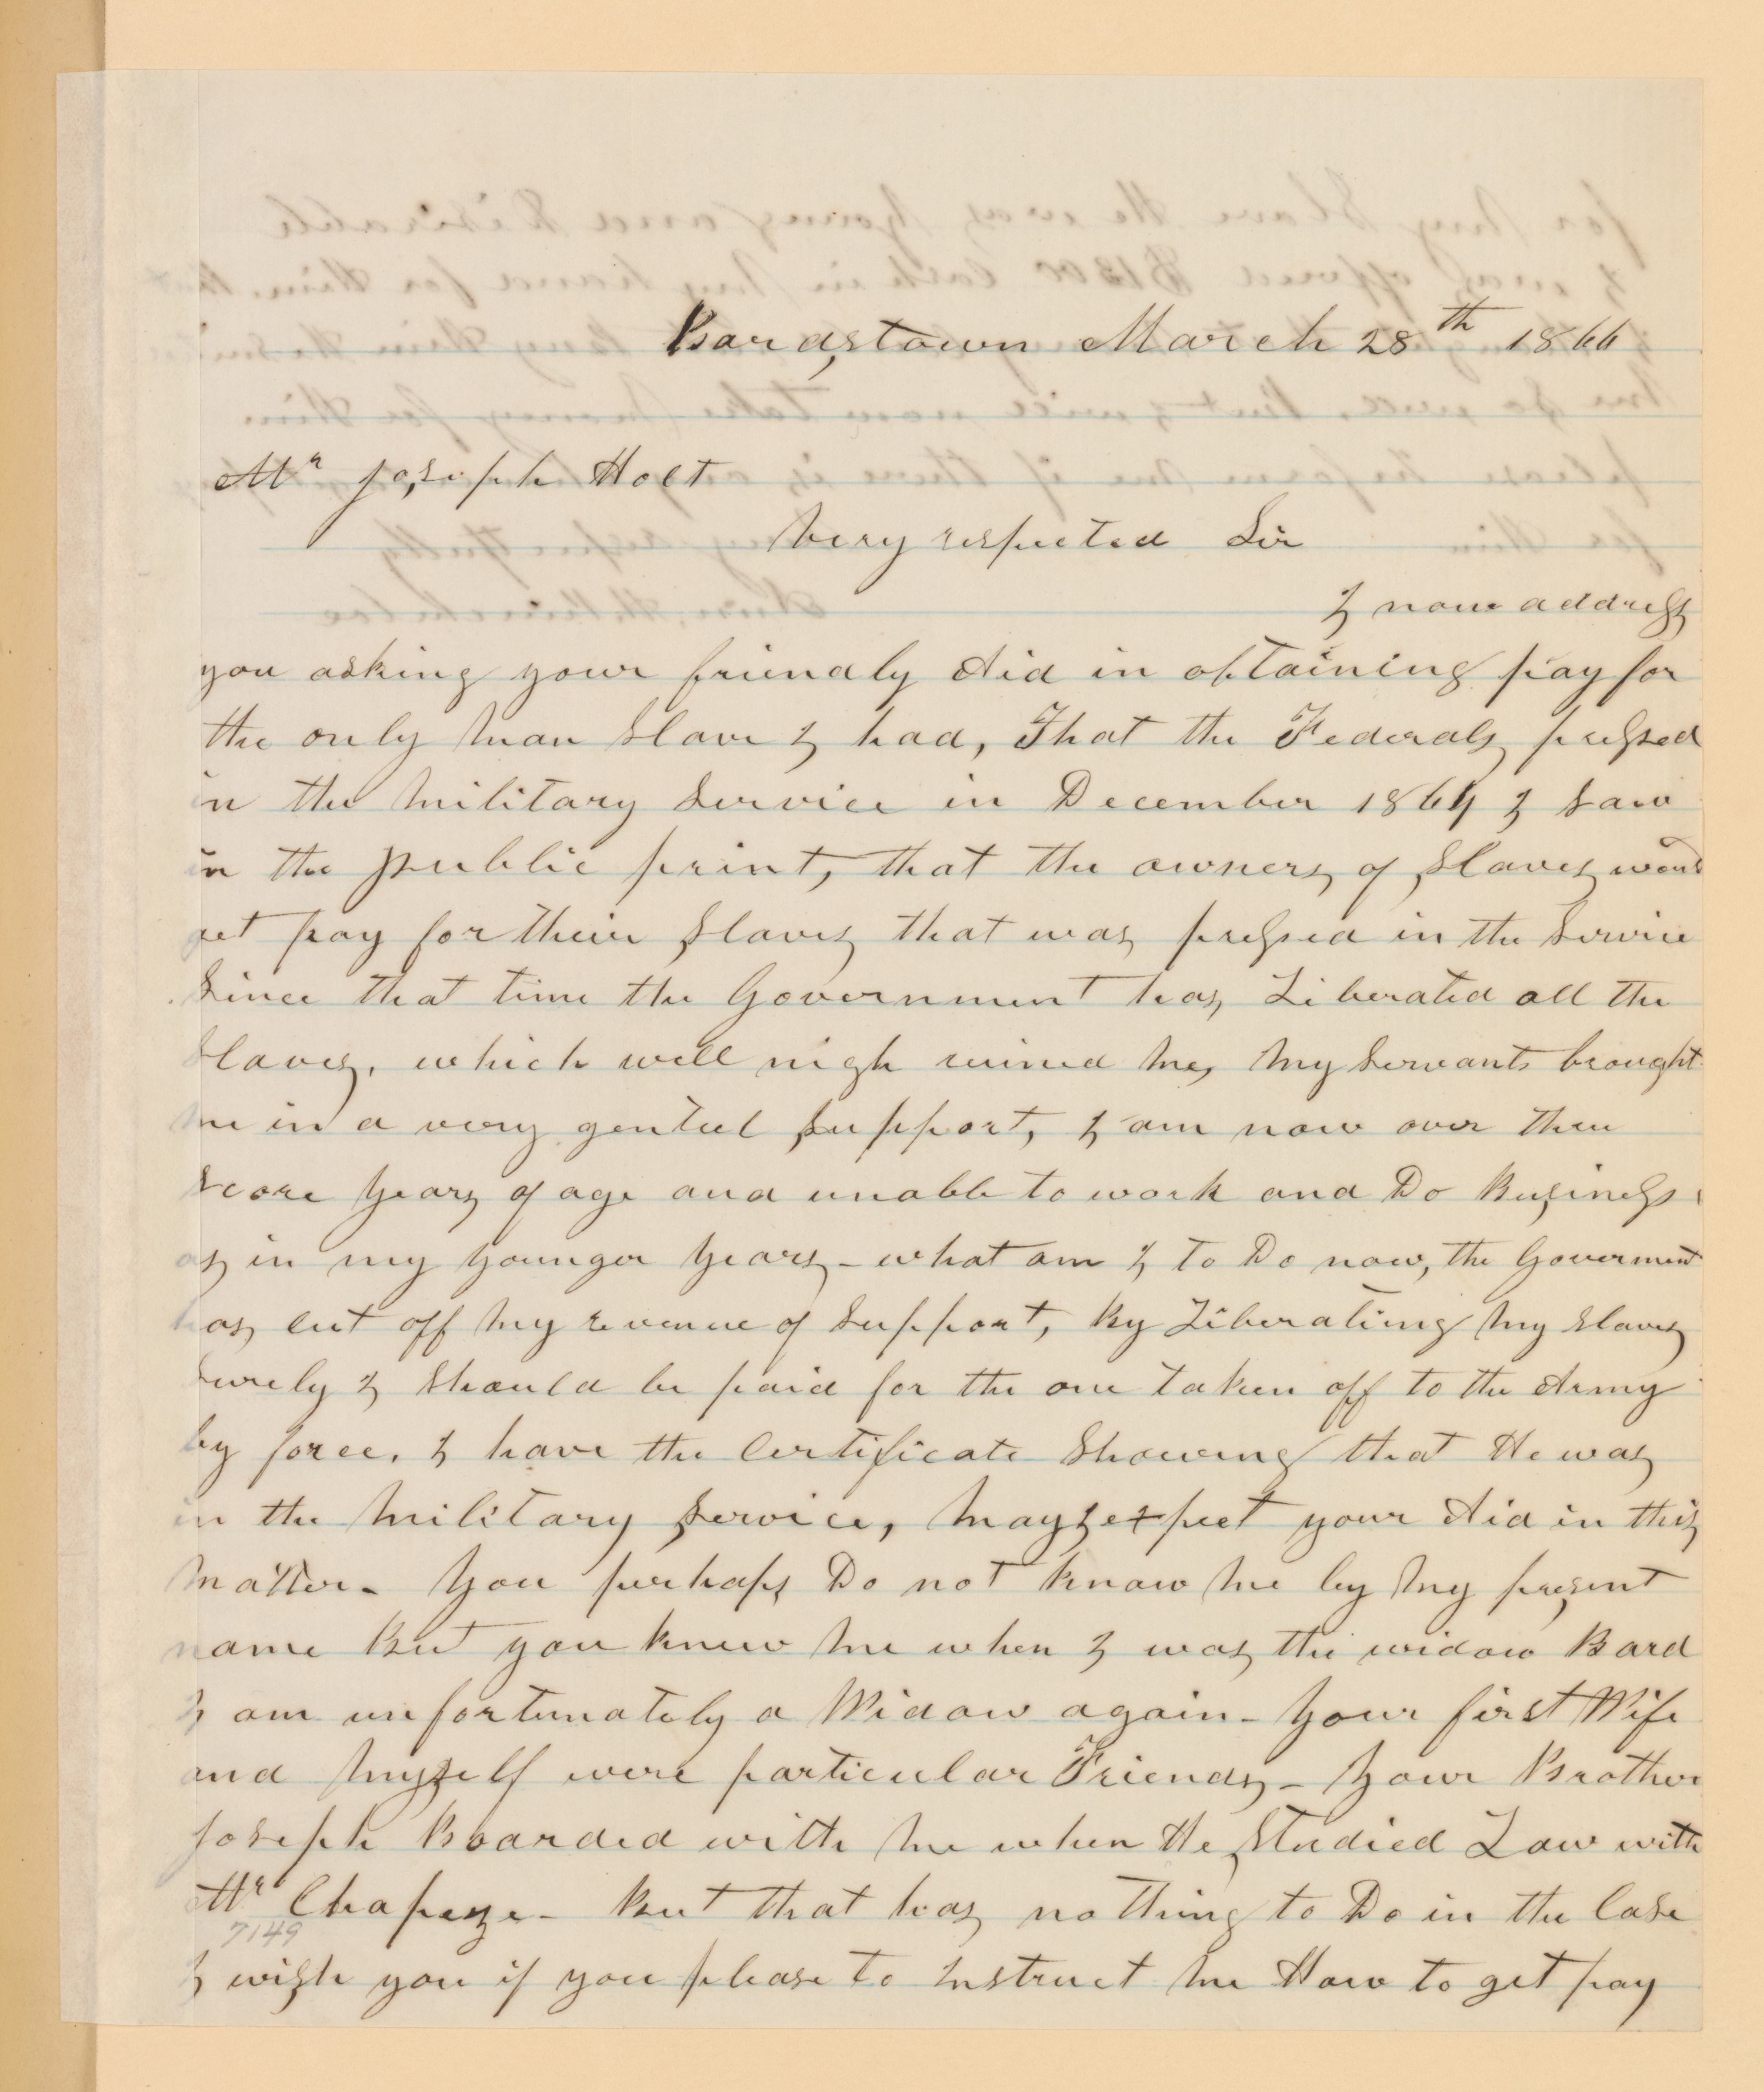 Bardstown March 28th 1866
Mr Joseph Holt
Very respected Sir
I now address
you asking your friendly Aid in obtaining pay for
the only man slave I had, That the Federals pressed
in the military service in December 1864 I saw
in the public print, that the owners of slaves would
get pay for their slaves that was pressed in the service
Since that time the Government has Liberated all the
slaves, which well nigh ruined me, my servants brought
me in a very genteel support, I am now over three
score years of age and unable to work and Do Business
as in my younger years - what am I to Do now, the Goverment
has cut off my revenue of support, By Liberating my slaves
surely I should be paid for the one taken off to the Army
by force, I have the Certificate showing that He was
in the military service, may I expect your Aid in this
matter - You perhaps Do not know me by my present
name But you knew me when I was the widow Bard
I am unfortunately a Widow again - your first Wife
and myself were particular Friends - your Brother
Joseph Boarded with me when He studied Law with
Mr Chapeze - But that has nothing to Do in the Case
7149
I wish you if you please to instruct me How to get pay